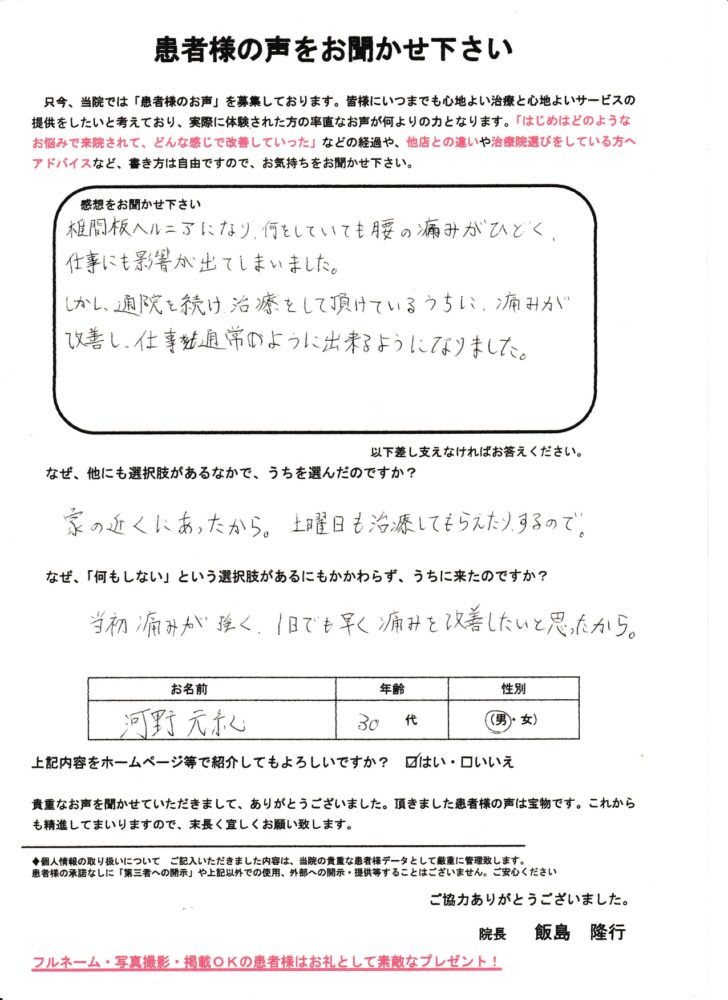 患者様の声をお聞かせ下さい
只今、当院では「患者様のお声」を募集しております。皆様にいつまでも心地よい治療と心地よいサービスの
提供をしたいと考えており、実際に体験された方の率直なお声が何よりの力となります。「はじめはどのような
お悩みで来院されて、どんな感じで改善していった」などの経過や、他店との違いや治療院選びをしている方へ
アドバイスなど、書き方は自由ですので、お気持ちをお聞かせ下さい。
感想をお聞かせ下さい
椎間板ヘルニアになり、何をしていても腰の痛みがひどく、
仕事にも影響が出てしまいました。
しかし、通院を続け治療をして頂けているうちに、痛みが
改善し、仕事も通常のように出来るようになりました。
以下差し支えなければお答えください。
なぜ、他にも選択肢があるなかで、うちを選んだのですか？
家の近くにあったから。土曜日も治療してもらえたりするので。
なぜ、「何もしない」という選択肢があるにもかかわらず、うちに来たのですか？
当初痛みが強く、1日でも早く痛みを改善したいと思ったから。
お名前 年齢 性別
河野 元 30 代 （男・女）
上記内容をホームページ等で紹介してもよろしいですか？ ☑はい・☐いいえ
貴重なお声を聞かせていただきまして、ありがとうございました。頂きました患者様の声は宝物です。これから
も精進してまいりますので、末長く宜しくお願い致します。
◆個人情報の取り扱いについて ご記入いただきました内容は、当院の貴重な患者様データとして厳重に管理致します。
患者様の承諾なしに「第三者への開示」や上記以外での使用、外部への開示・提供等することはございません。ご安心ください
ご協力ありがとうございました。
院長 飯島 隆行
フルネーム・写真撮影・掲載ＯＫの患者様はお礼として素敵なプレゼント！